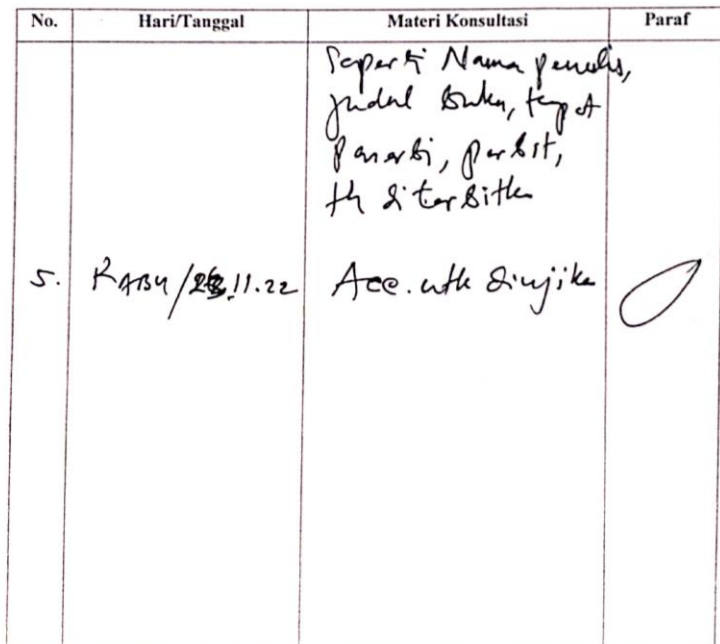 No. Hari/Tanggal Materi Konsultasi Paraf
Seperti Nama penulis,
judul buku, tempat
Penerbi, perbit,
th diterbitkn
5. RABU / .11.22 Acc. utk diujika